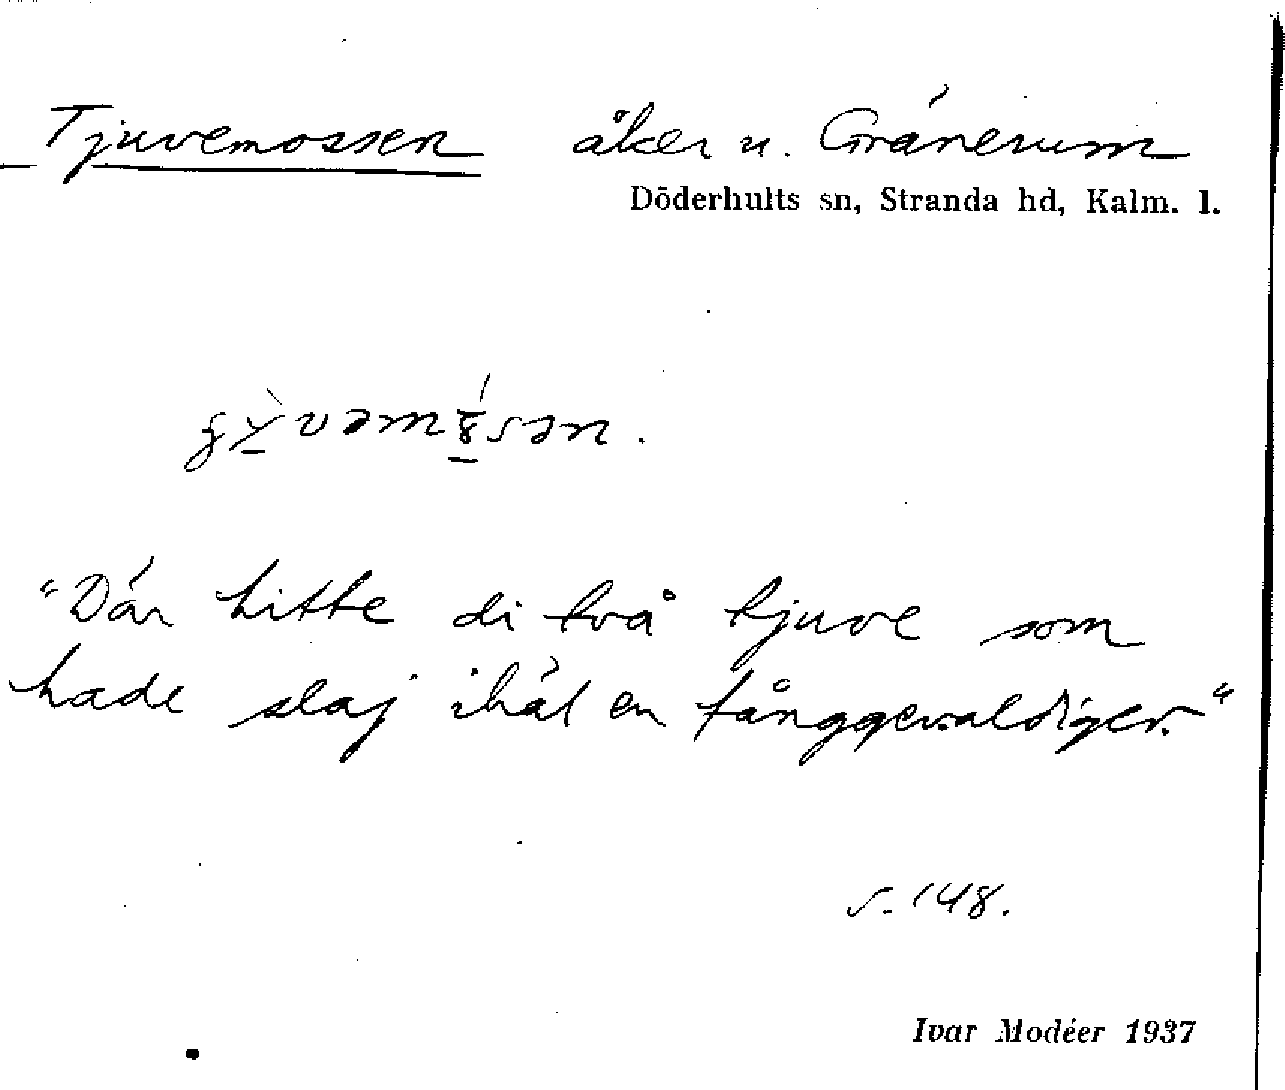 Tjuvemossen åker u. Gränerum
Döderhults sn, Stranda hd, Kalm. l.
"Där hitte di två tjuve som
hade slaj ihäl en fånggevaldiger."
s. 148.
Ivar Modéer 1937